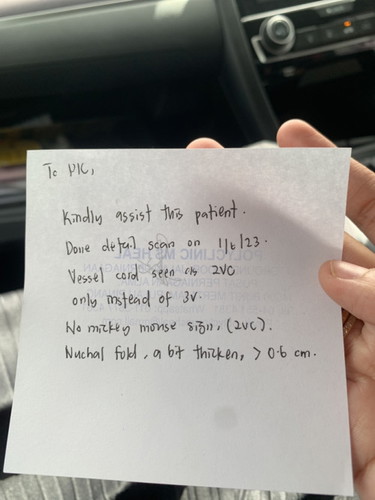 To PIC,
Kindly assist this patient.
Done detail scan on 1/6/23.
Vessel cord seen as 2VC
only instead of 3V.
No mickey mouse sign, (2VC).
Nuchal fold, a bit thicken, > 0.6 cm.